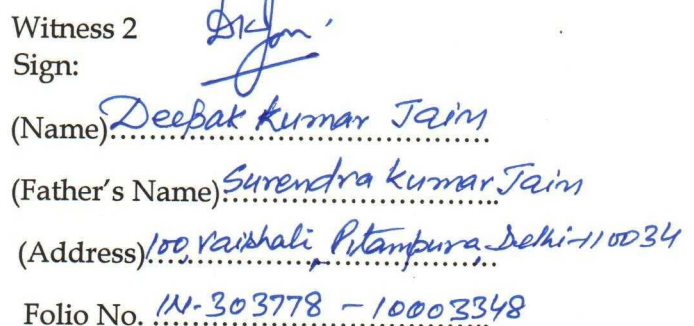 Witness 2
Sign: DKJain
(Name) Deepak Kumar Jain
(Father's Name) Surendra Kumar Jain
(Address) 100, Vaishali, Pitampura, Delhi-110034
Folio No. IN-303778 - 10003348